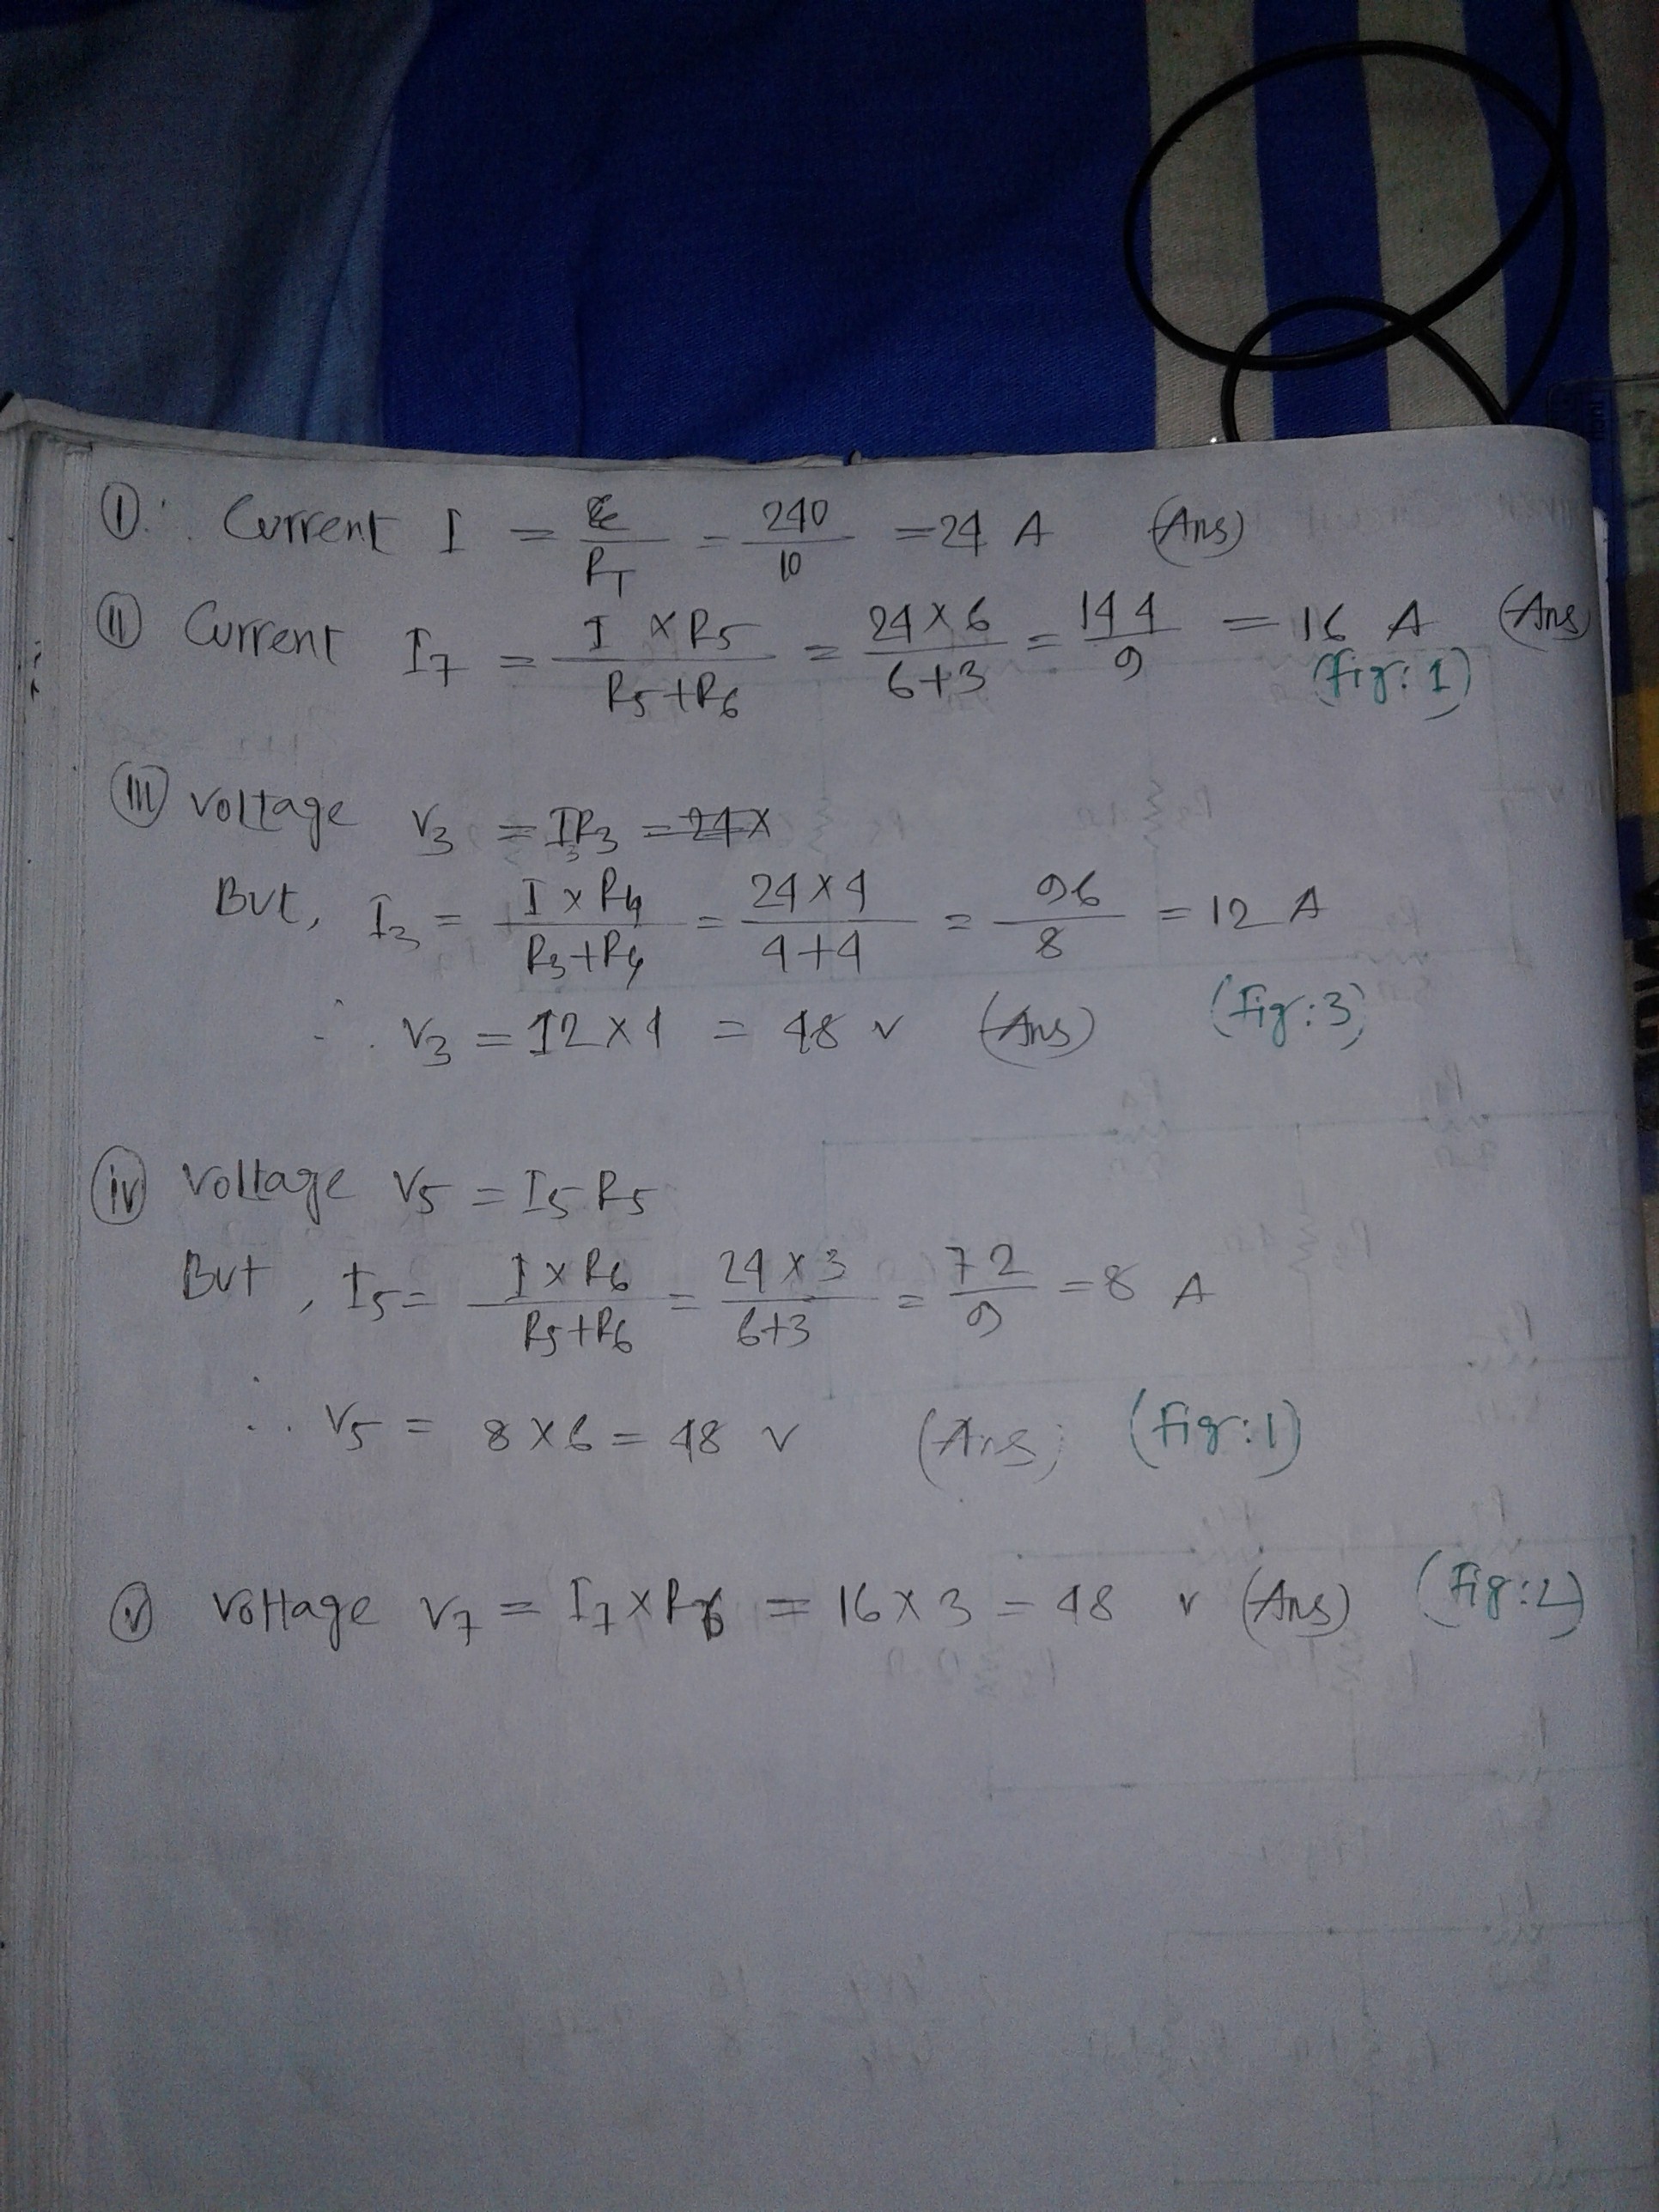 (I) ∴ Current I = E/R_T = 240/10 = 24 A (Ans)
(II) Current I7 = I × R5 / R5+R6 = 24×6 / 6+3 = 144/9 = 16 A (Ans)
(Fig: 1)
(III) Voltage V3 = I3R3 = 24×
But, I3 = I × R4 / R3+R4 = 24×4 / 4+4 = 96/8 = 12 A
∴ V3 = 12×4 = 48 v (Ans) (Fig: 3)
(iv) Voltage V5 = I5 R5
But, I5 = I × R6 / R5+R6 = 24×3 / 6+3 = 72/9 = 8 A
∴ V5 = 8×6 = 48 v (Ans) (Fig: 1)
(v) Voltage V7 = I7×R6 = 16×3 = 48 v (Ans) (Fig: 2)